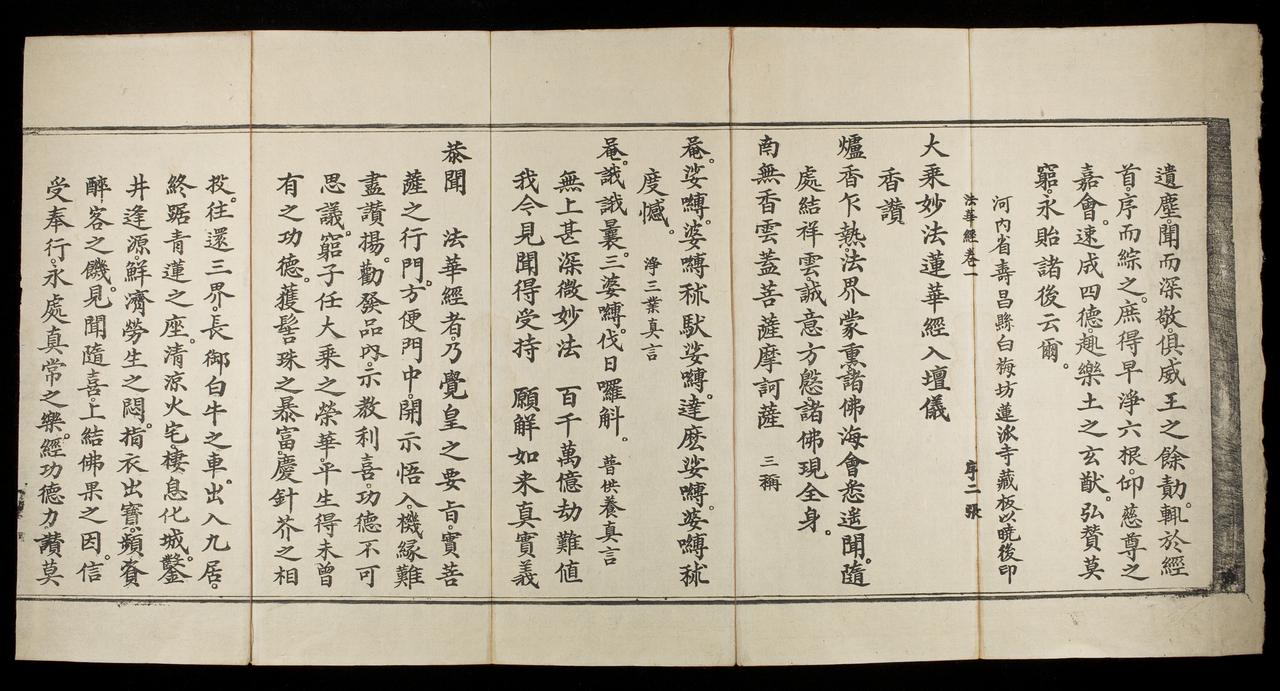 遺塵。聞而深敬。俱威王之餘勣。輒於經
首。序而綜之。庶得早淨六根。仰慈尊之
嘉會。速成四德。趣樂土之玄猷。弘贊莫
窮。永貽諸後云爾。
河內省壽昌縣白梅坊蓮派寺藏板以曉後印
法華經卷一 序二張
大乘妙法蓮華經入壇儀
香讚
爐香乍熱。法界蒙熏。諸佛海會悉遙聞。隨
處結祥雲。誠意方慇。諸佛現全身。
南無香雲蓋菩薩摩訶薩 三稱
菴。娑嚩。婆嚩秫馱娑嚩。達麼娑嚩。婆嚩秫
度憾。 淨三業真言
菴。誐誐曩。三婆嚩。伐日囉斛。 普供養真言
無上甚深微妙法 百千萬億劫難值
我今見聞得受持 願解如来真實義
恭聞 法華經者。乃覺皇之要旨。實菩
薩之行門。方便門中。開示悟入。機緣難
盡讚揚。勸發品內。示教利喜。功德不可
思議。窮子任大乘之榮華。平生得未曾
有之功德。獲髻珠之暴富。慶針芥之相
投。往還三界。長御白牛之車。出入九居。
終踞青蓮之座。清涼火宅。棲息化城。鑿
井逢源。鮮濟勞生之悶。指衣出寶。頻賚
醉客之饑。見聞隨喜。上結佛果之因。信
受奉行。永處真常之樂。經功德力。讚莫